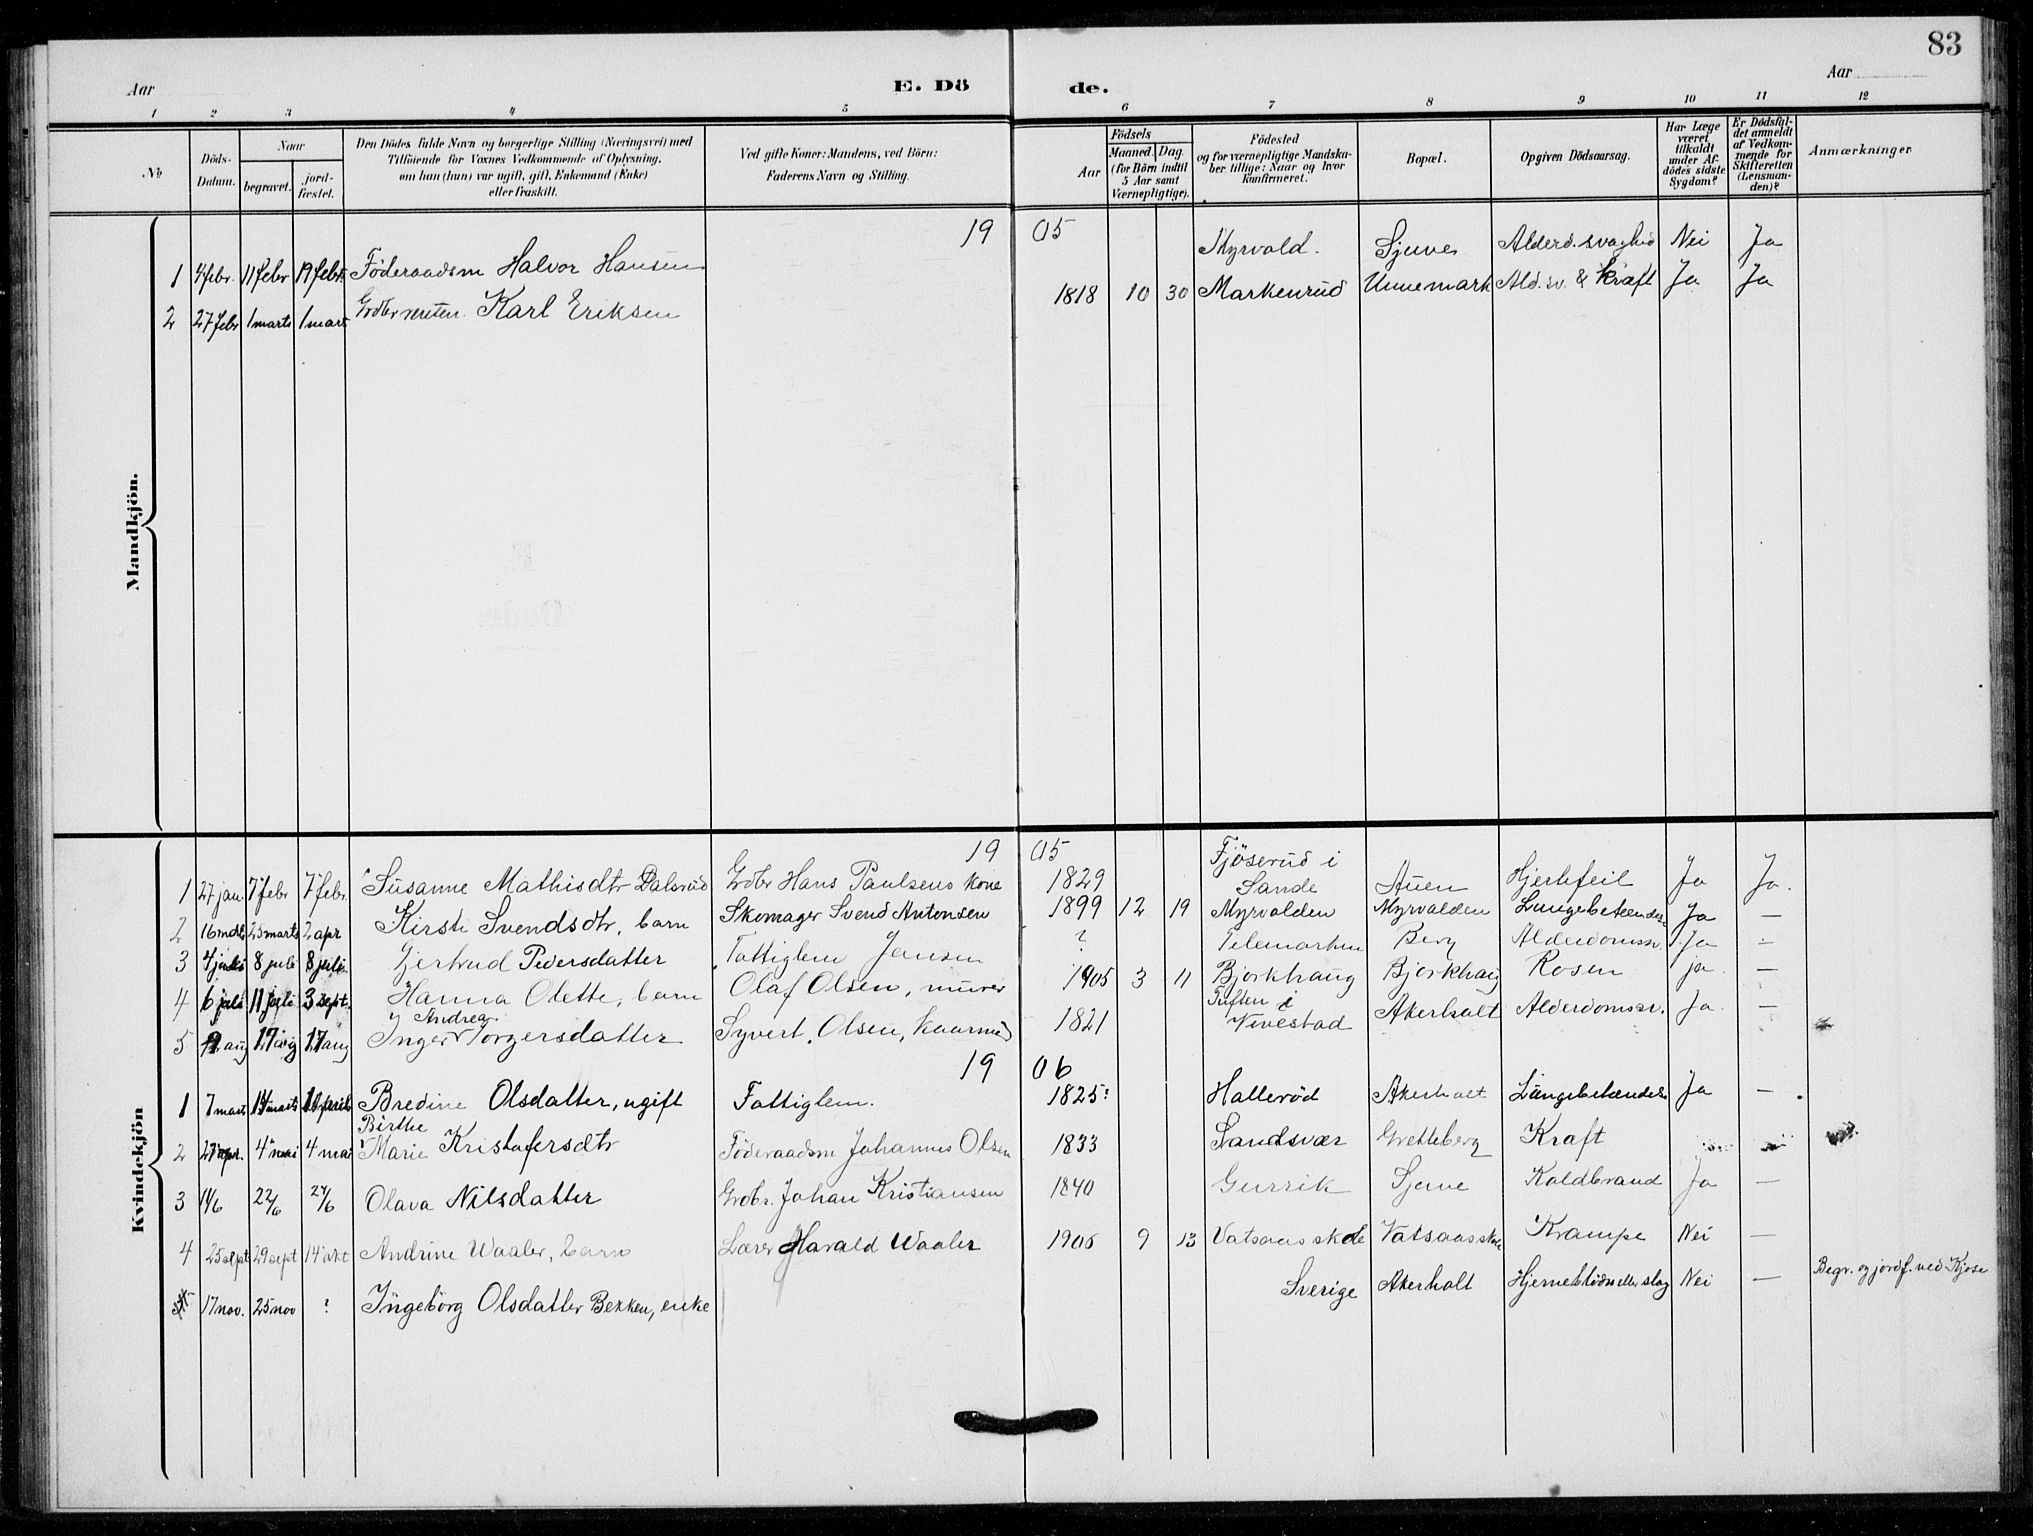 83
Aar
E. Dö de.
Aar
1 2 3 4 5 6 7 8 9 10 11 12
№
Döds-Datum.
Naar
begravet.
jord-fæstet.
Den Dödes fulde Navn og borgerlige Stilling (Næringsvei) med
Tilföiende for Voxnes Vedkommende af Oplysning,
om han (hun) var ugift, gift, Enkemand (Enke)
eller fraskilt.
Ved gifte Koner: Mandens, ved Börn:
Faderens Navn og Stilling.
Födsels
Aar
Maaned. Dag.
(for Börn indtil
5 Aar samt
Værnepligtige).
Födested
og for værnepligtige Mandska-
ber tillige: Naar og hvor
konfirmeret.
Bopæl.
Opgiven Dödsaarsag.
Har Læge
været
tilkaldt
under Af-
dödes sidste
Sygdom?
Er Dödsfal-
det anmeldt
af Vedkom-
mende for
Skifteretten
(Lensman-
den)?
Anmærkninger
Mandkjön.
19 05
1 4 febr. 11 febr 19 febr. Föderaadsm Halvor Hansen Myrvold. Sjuve Alderd. svaghed Nei Ja
2 27 febr 1 marts 1 marts Grdbr Karl Eriksen 1818 10 30 Markenrud Unnemark Ald. sv. & Kraft Ja Ja
Kvindekjön
19 05
1 27 jan. 7 febr 7 febr. Susanne Mathisdtr Dalsrud Grdbr Hans Paulsens kone 1829 Fjöserud i Sande Auen Hjertefeil Ja Ja.
2 16 marts 25 marts 2 apr Kirsti Svendsdtr, barn Skomager Svend Antonsen 1899 12 19 Myrvolden Myrvolden Lungebetændelse Ja —
3 4 juli 8 juli 8 juli. Gjertrud Pedersdatter Fattiglem Jansen ? Telemarken Berg Alderdomssv. Ja —
4 6 juli 11 juli 3 sept. Hanna Olette, barn Olaf Olsen, murer 1905 3 11 Bjorkhaug Bjorkhaug Rosen ja —
Andrea
5 aug 17 aug 17 aug Inger Torgersdatter Syvert Olsen, 1821 Tuften i Vivestad Akerholt Alderdomssv. Ja. —
19 06
1 7 marts 14 marts april Bredine Olsdatter, ugift Fattiglem. 1825? Hallerød Akerholt Lungebetændelse Ja —
Birthe
2 27 apr. 4 mai 4 mai Marie Kristofersdtr Föderaadsm Johannes Olsen 1833 Sandsvær Gretteberg Kraft
3 14/6 22/6 24/6 Olava Nilsdatter Grdbr. Johan Kristiansen 1840 Gurrik Sjerve Koldbrand Ja —
4 25 sept 29 sept 14 okt Andrine Waaler, barn Lærer Harald Waaler 1906 9 13 Vatsaas skole Vatsaas skole Krampe Nei —
5 17 nov. 25 nov ? Ingeborg Olsdatter Bekken, enke Sverige Akerholt Hjerneblödn eller slag Nei — Begr. og jordf. ved Kjose